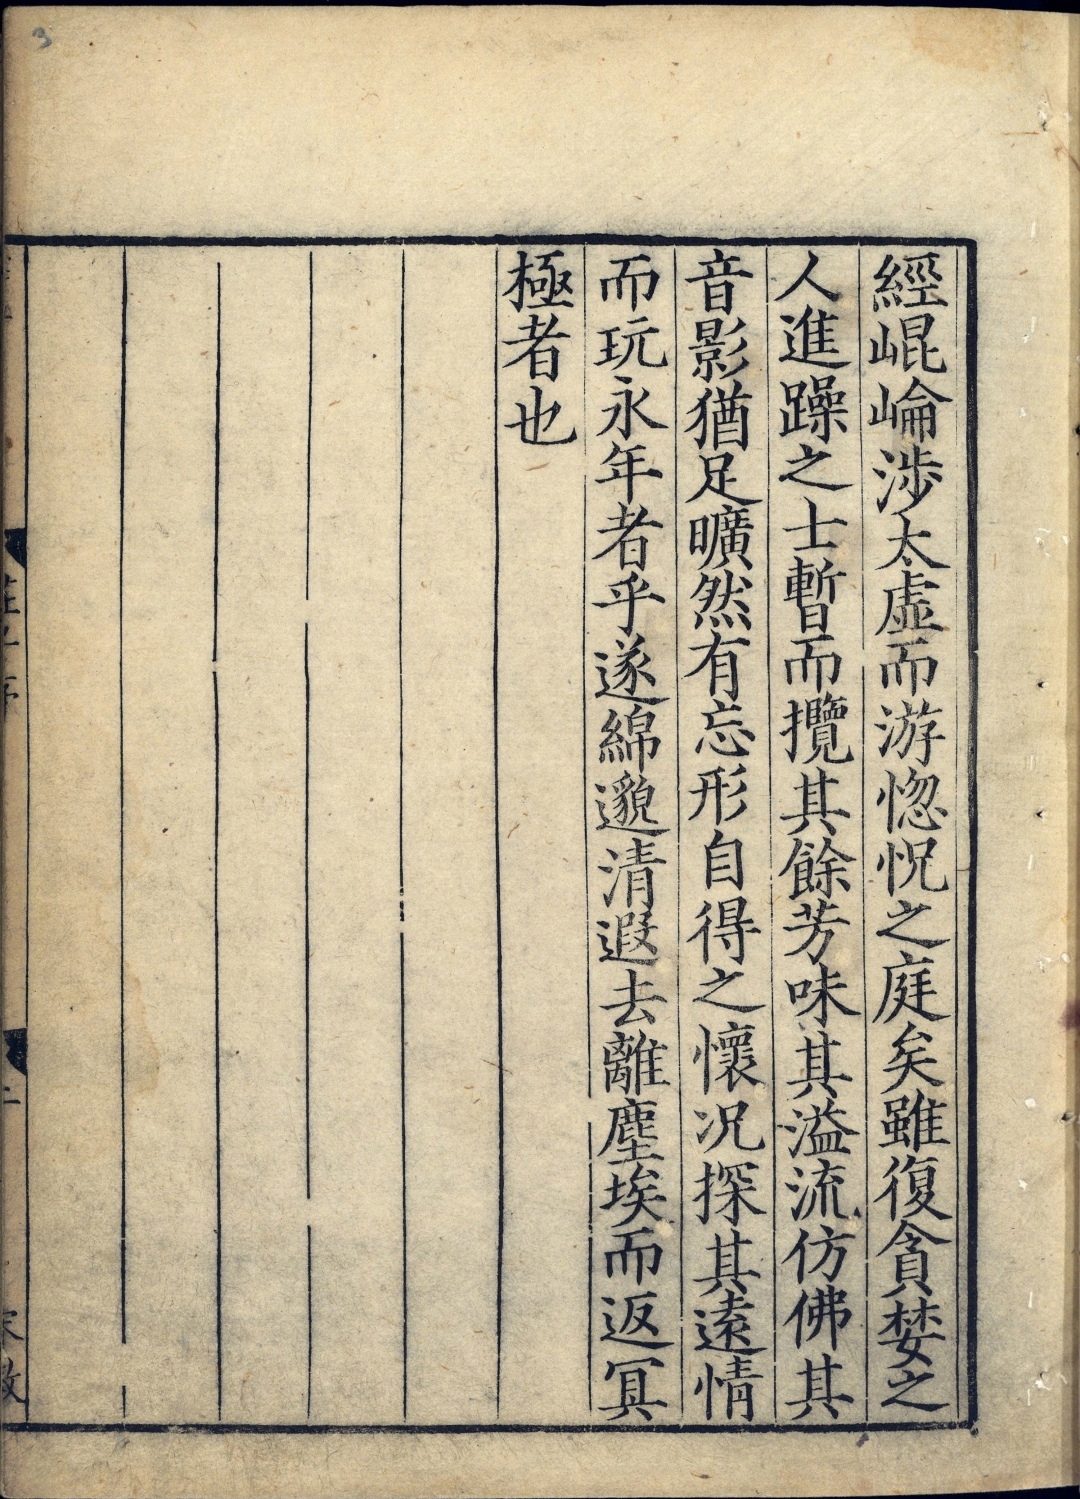 經崐崘涉太虛而游惚怳之庭矣雖復貪婪之
人進躁之士暫而攬其餘芳味其溢流仿佛其
音影猶足曠然有忘形自得之懷况探其遠情
而玩永年者乎遂綿邈清遐去離塵埃而返冥
極者也
3